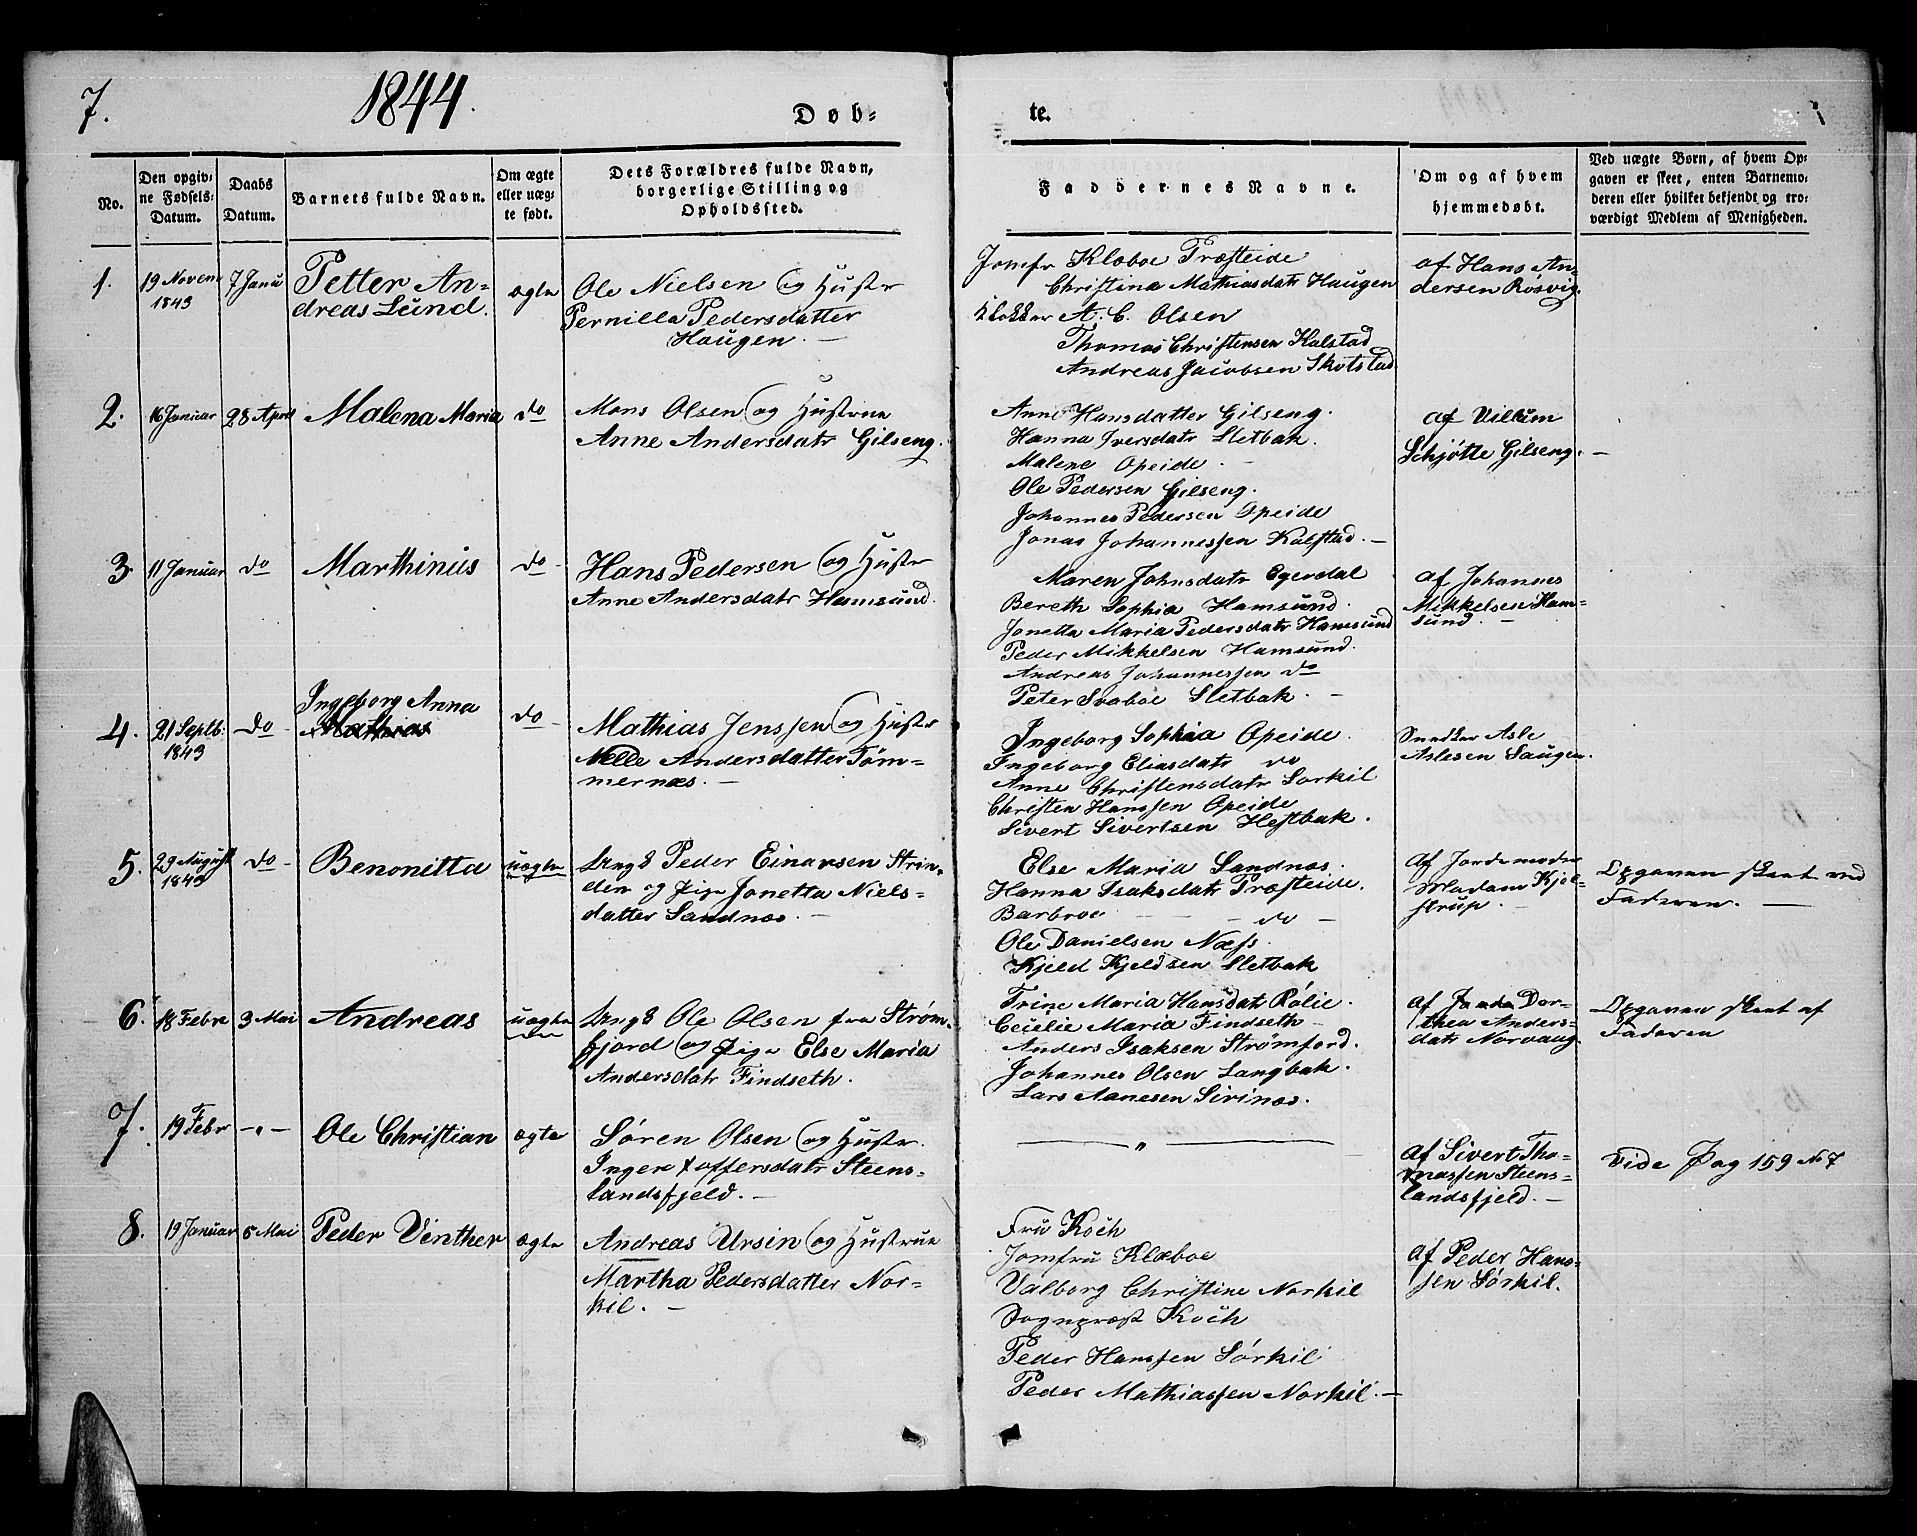 7.
1844.
Døb-
te.
No.
Den opgiv-
ne Fødsels-
Datum.
Daabs
Datum.
Barnets fulde Navn.
Om ægte
eller uæg-
te født.
Dets Forældres fulde Navn,
borgerlige Stilling og
Opholdssted.
Faddernes Navne.
Om og af hvem
hjemmedøbt.
Ved uægte Børn, af hvem Op-
gaven er skeet, enten Barnemo-
deren eller hvilket bekjendt og tro-
værdigt Medlem af Menigheden.
1.
19 Novem
1843
7 Janu
Petter An-
dreas Lund.
ægte
Ole Nielsen og Hustr
Pernilla Pedersdatter
Haugen. —
Jomfr Klæboe Præsteide
Christina Mathiasdatr Haugen
Klokker A. C. Olsen
Thomas Christensen Kalstad
Andreas Jacobsen Skotstad
af Hans An-
dersen Rosvig.
2.
16 Januar
28 April
Malena Maria
do
Mons Olsen og Hustrue
Anne Andersdatr Gilseng.
Anne Hansdatter Gilseng.
Hanna Iversdatr Sletbak.
Malene Opeide. —
Ole Pedersen Gilseng.
Johannes Pedersen Opeide
Jonas Johannessen Kalstad. —
af Villum
Schjötte Gilseng. —
3
11 Januar
do
Marthinus
do
Hans Pedersen og Hustr
Anne Andersdatr Hamsund.
Maren Johnsdatr Egerdal
Bereth Sophia Hamsund.
Jonetta Maria Pedersdatr Hamsund
Peder Mikkelsen Hamsund.
Andreas Johannessen do
Peter Svaboe Sletbak. —
af Johannes
Mikkelsen Ham-
sund. —
4.
21 Septb.
1843
Do
Ingeborg Anna
Mathias
do
Mathias Jenssen og Hustr
Nelle Andersdatter Töm-
mernæs. —
Ingeborg Sophia Opeide.
Ingeborg Eliasdatr do
Anne Christensdatr Sorkil
Christen Hanssen Opeide
Sivert Sivertsen Hestbak.
Snedker Asle
Aslesen Saugen.
5.
29 August
1843
do
Benonitta
uægte
Ungk Peder Einarsen Strin-
den og Pige Jonetta Niels-
datter Sandnæs. —
Else Maria Sandnæs.
Hanna Isaksdatr Præsteide.
Barbroe — — do —
Ole Danielsen Næss.
Kjeld Kjeldsen Sletbak
af Jordemoder
Madam Kjel-
strup. —
Opgaven skeet ved
Faderen. —
6.
18 Febr
3 Mai
Andreas
uægte
Ungk Ole Olsen fra Ström-
fjord og Pige Else Maria
Andersdatr Findseth.
Trine Maria Hansdatr Rölie.
Cecilie Maria Findseth
Anders Isaksen Strömford.
Johannes Olsen Langbak.
Lars Aanesen Sirinæs.
af Dor-
thea Anders-
datr Norvaag.
Opgaven skeet af
Faderen
7.
19 Febr
— „ —
Ole Christian
ægte
Sören Olsen og Hustr
Inger Toffersdatr Steens-
landsfjeld. —
— „ —
af Sivert Tho-
massen Steens-
landsfjeld. —
Vide Pag 159 N. 7
8.
19 Januar
5 Mai
Peder Vinther
ægte
Andreas Ursin og Hustrue
Martha Pedersdatter Nor-
kil. —
Fru Koch
Jomfru Klæboe
Valborg Christine Norkil
Sognepræst Koch
Peder Hanssen Sörkil
Peder Mathiassen Norkil. —
af Peder Hans-
sen Sörkil.